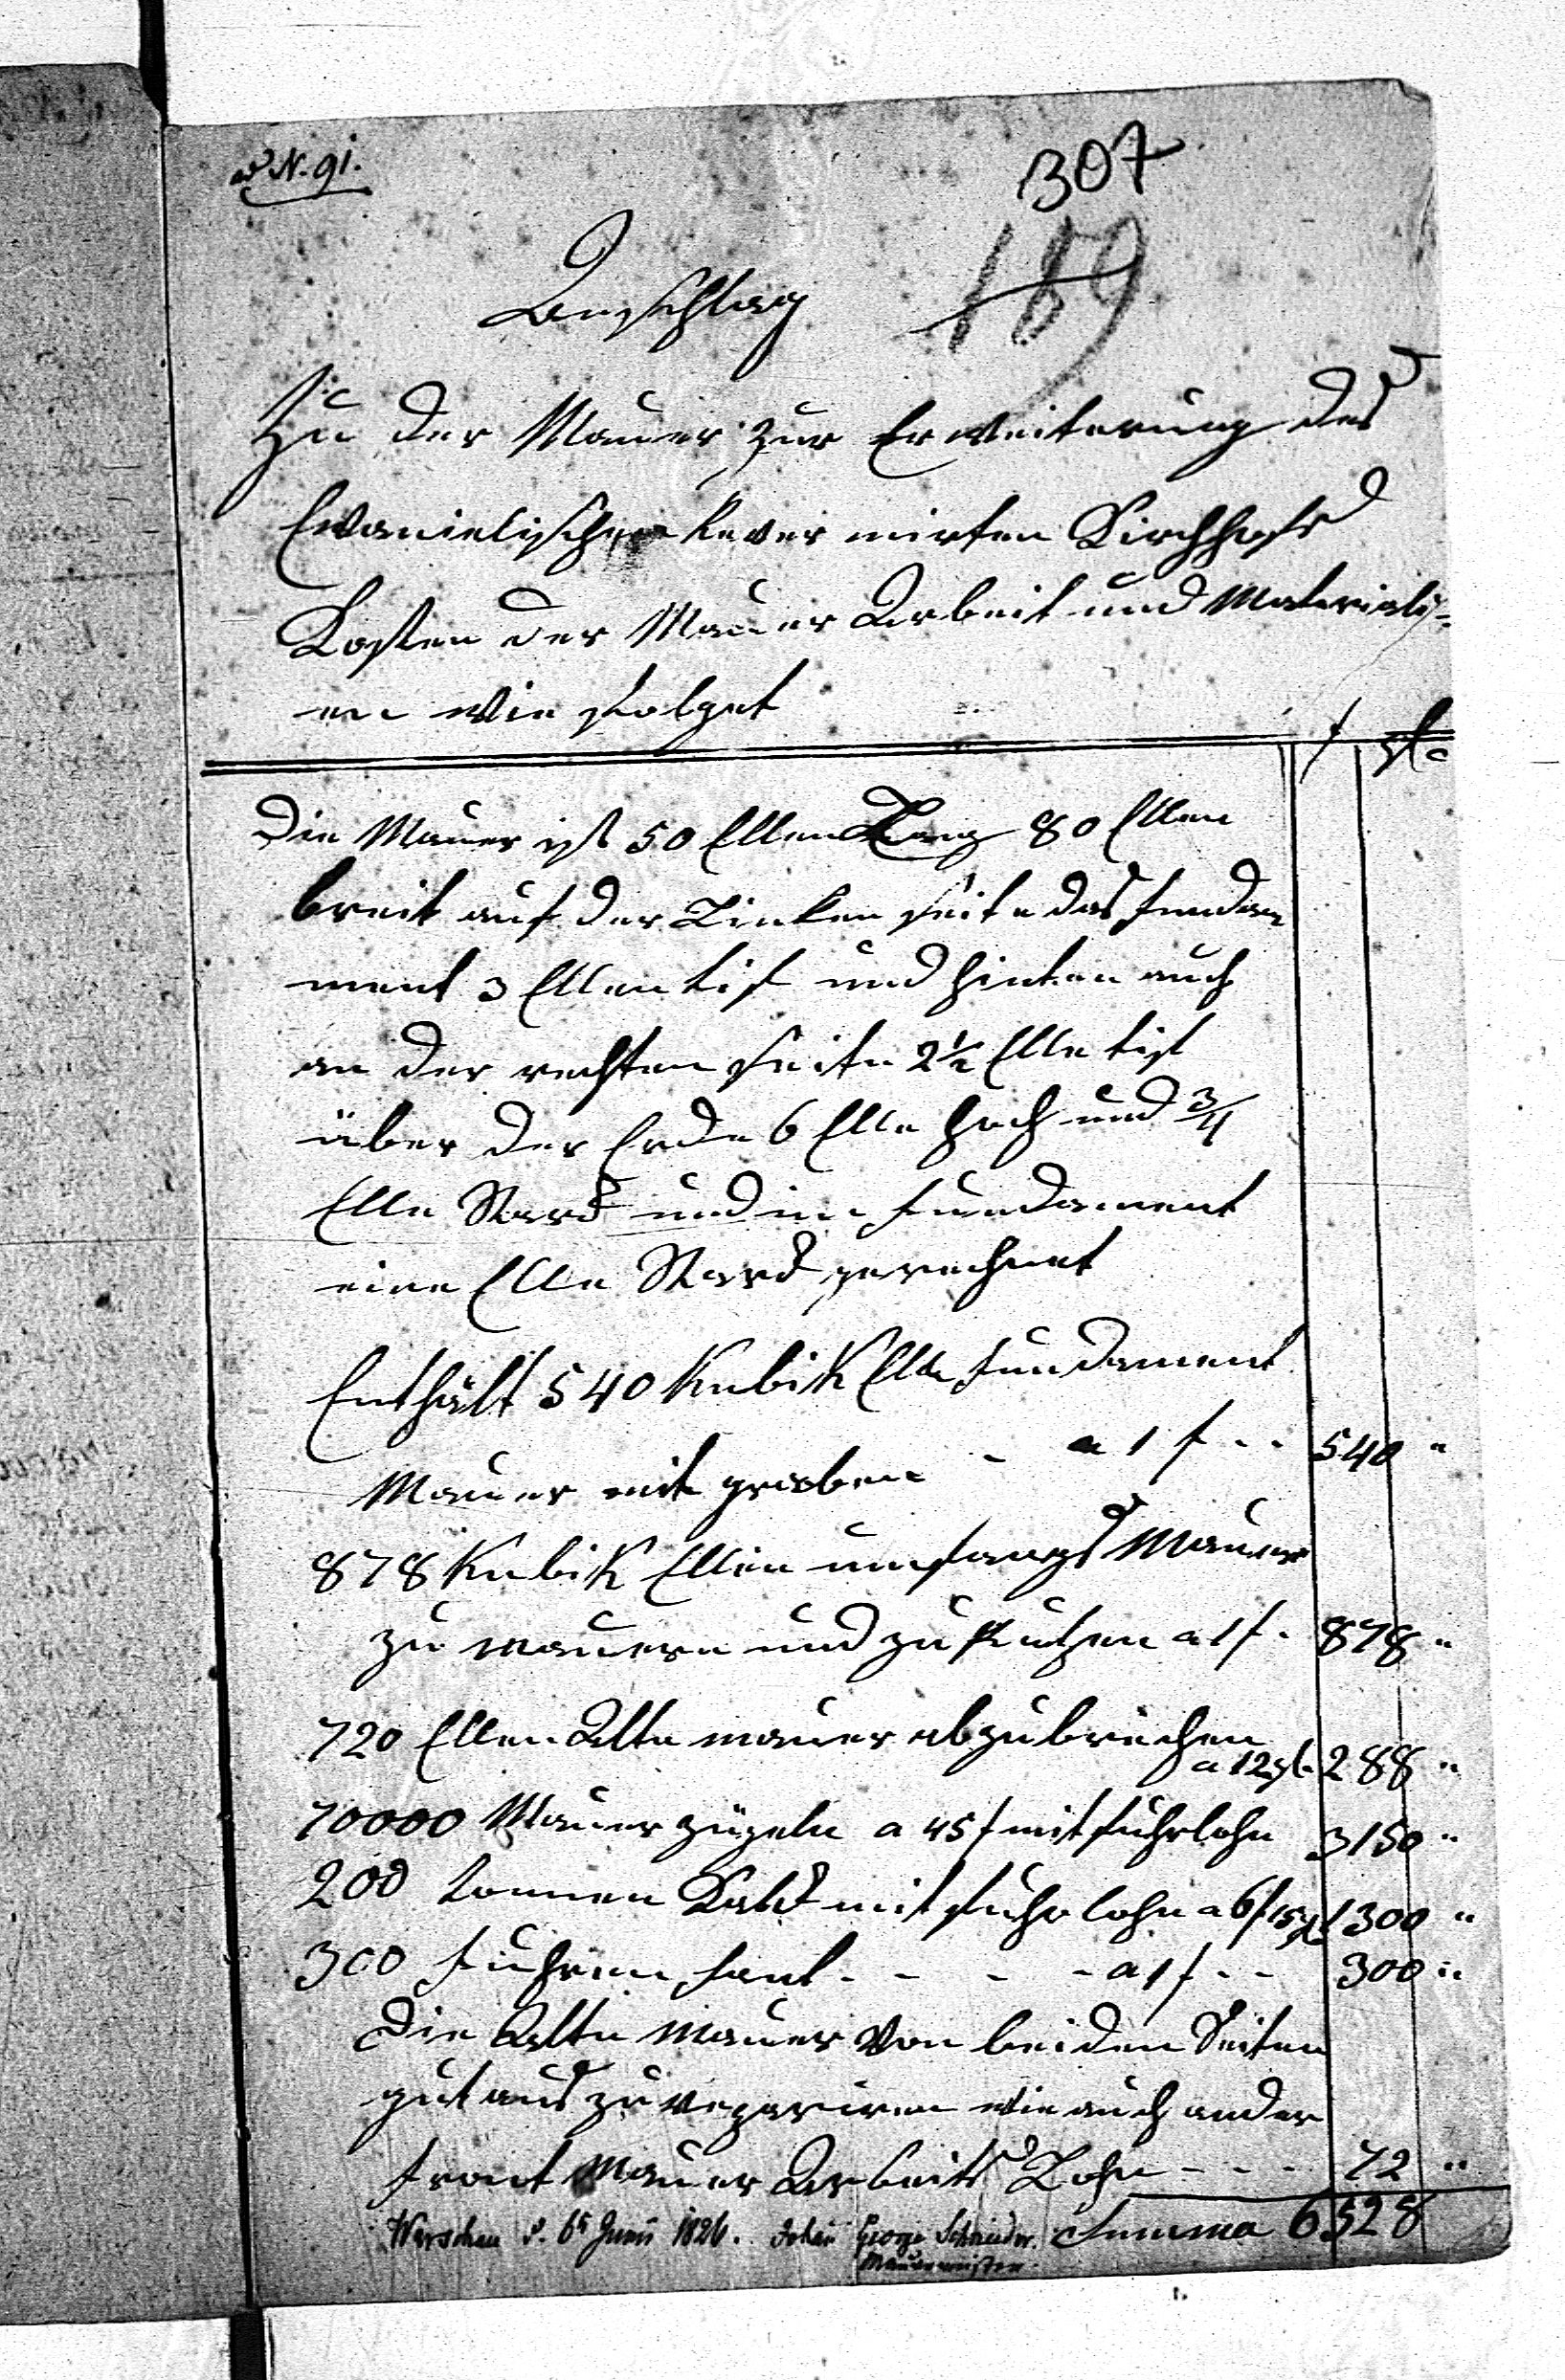 ad N. 91.
307
189
Anschlag
Zu der Mauer zur Erweiterung des
Evanielischen Rever mirten Kirchhofs
Kosten der Mauer Arbeit und Materiali-
en wie folget
f gl
Die Mauer ist 50 Ellen Lang 80 Ellen
breit auf der Linken seite das funda
ment 3 Ellen tif und hinten auch
an der rechten seite 2½ Elle tif
über der Erde 6 Elle hoch und 3/4
Elle Stark und im fundament
eine Elle Stark gerechnet
Enthält 540 Kubik Elle fundament
Mauer mit graben - a 1 f - - 540 "
878 Kubik Ellen umfangs Mauer
zu mauern und zu Putzen a 1 f - 878 "
720 Ellen Alte mauer abzubrechen
a 12 gl 288 "
70000 Mauer zügeln a 45 f mit fuhrlohn 3150 "
200 tonnen Kalk mit fuhr lohn a 6 f 15 gl 1300 "
300 fuhren sant - - - - a 1 f - - 300 "
Die Alte Mauer von beiden Seiten
gut aus zu repariren wie auch an der
front Mauer Arbeits Lohn - - - 72 "
Summa 6528
Warschau d. 6t Juni 1826. Johan George Schneider
Mauermeister